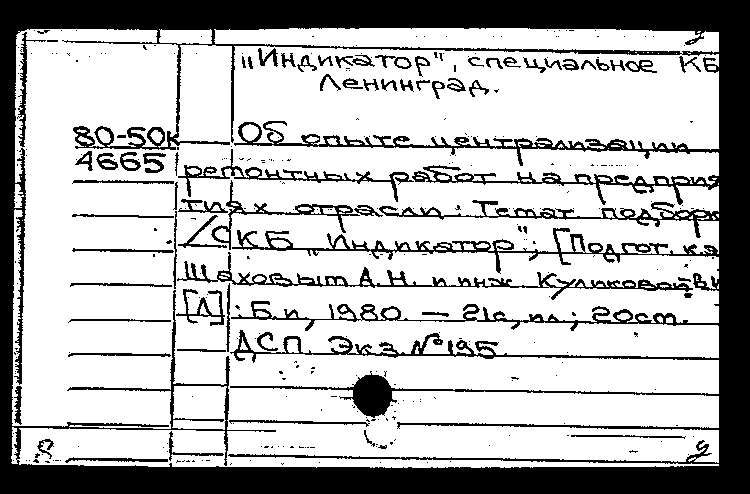 „Индикатор", специальное КБ
Ленинград.
80-50к Об опыте централизации
4665 ремонтных работ на предприя
тиях отрасли : Темат. подборк
/СКБ „Индикатор"; [Подгот.
Шаховым А.Н. и инж. Куликовой
[Л] : Б.и, 1980. — 21с, ил; 20см.
ДСП. Экз. №195